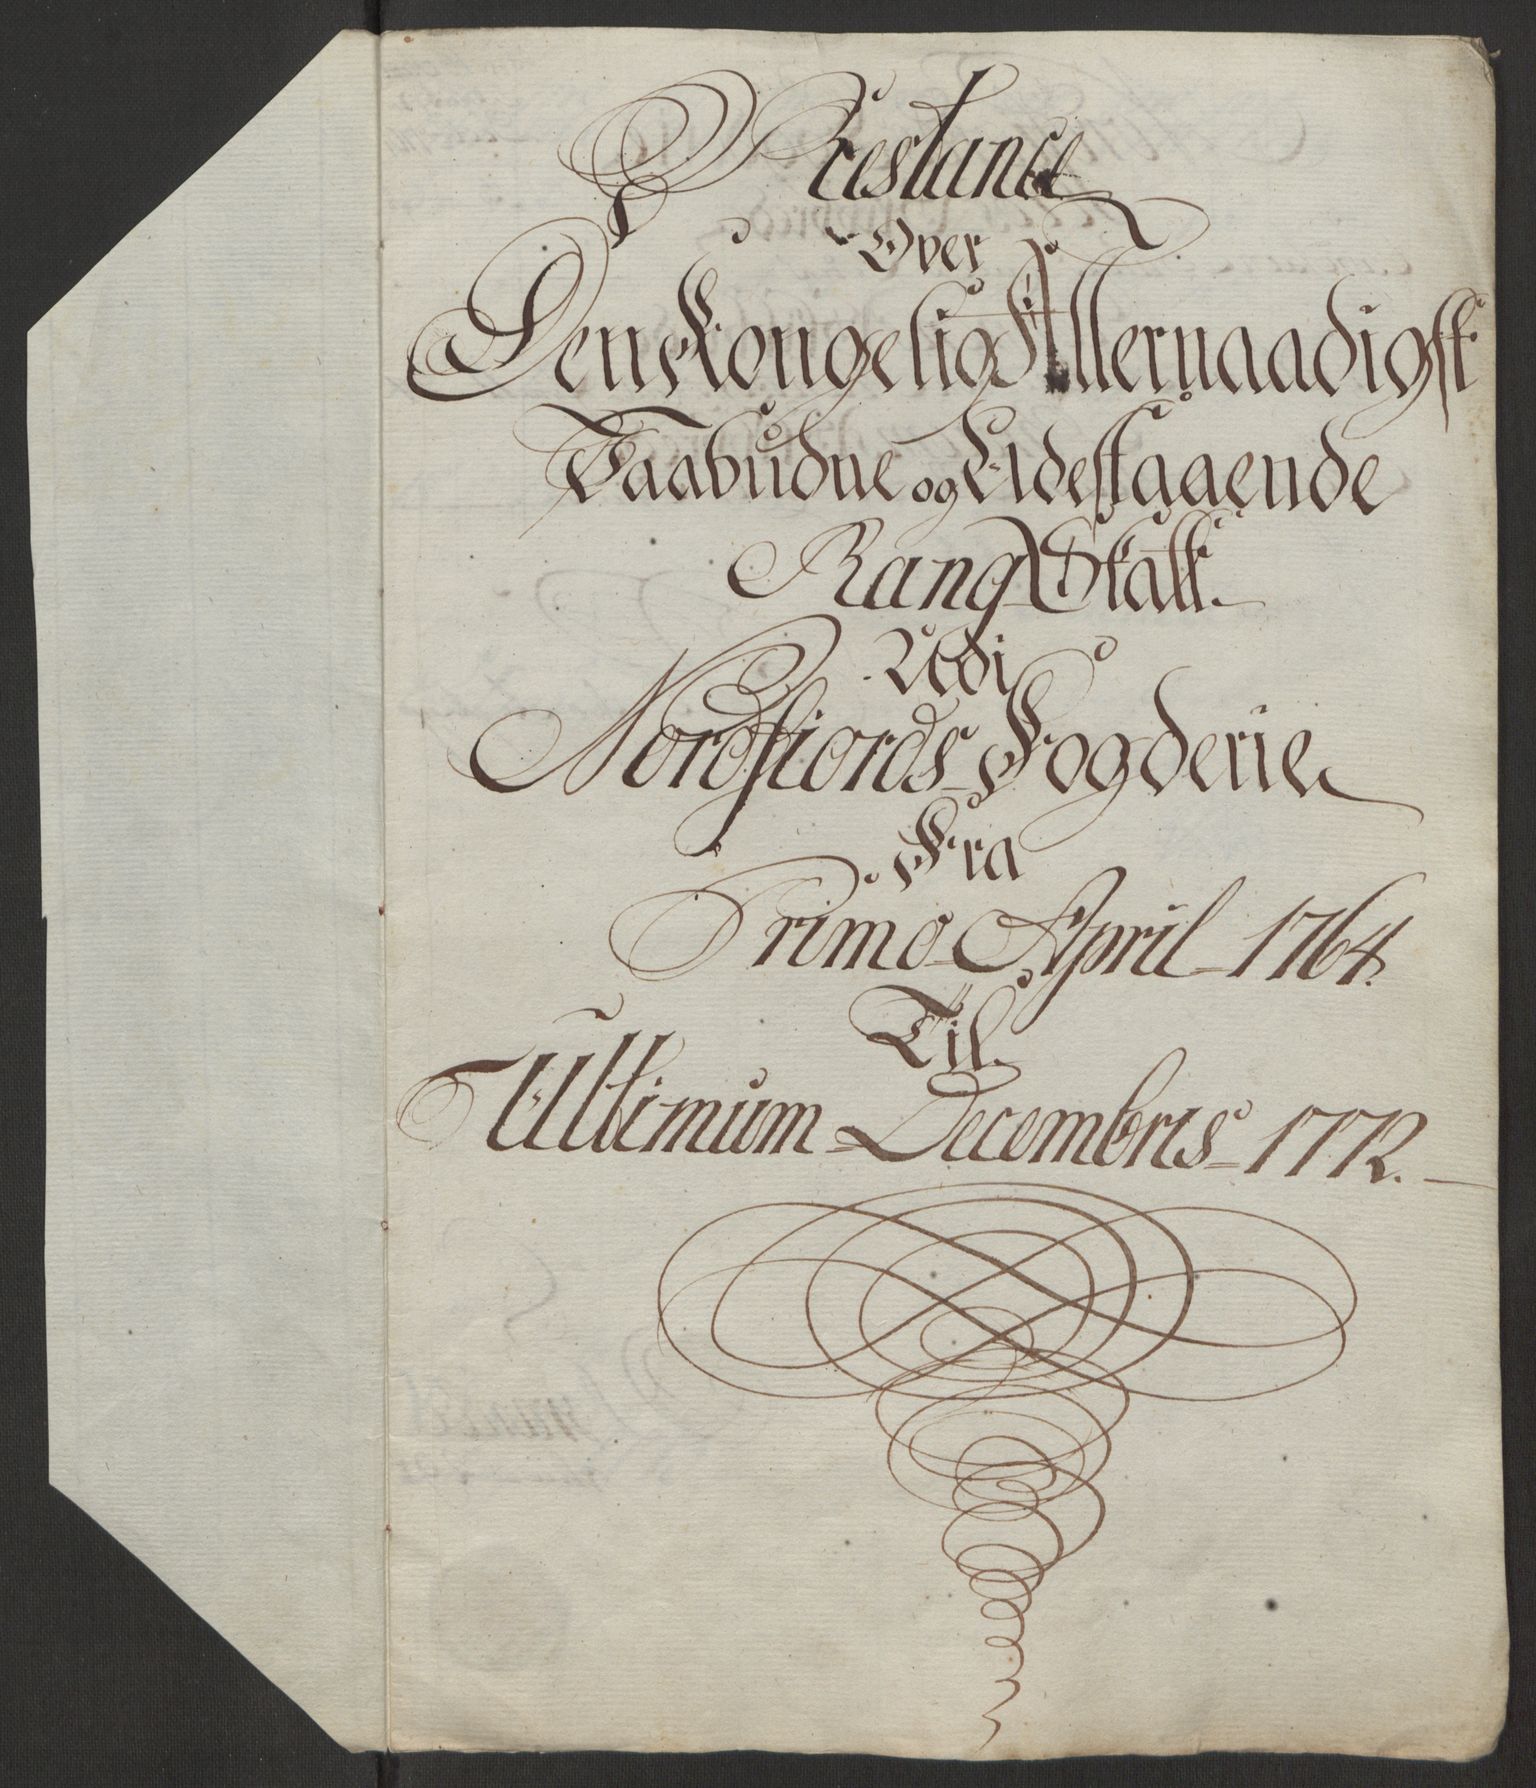 Restance
Over
Den Kongelig Allernaadigst
Paabudne og Udestaaende
Rang Skatt
Udi
Nordfiords Fogderie
Fra
Primo April 1764.
Til
Ultimum Decembris 1772.